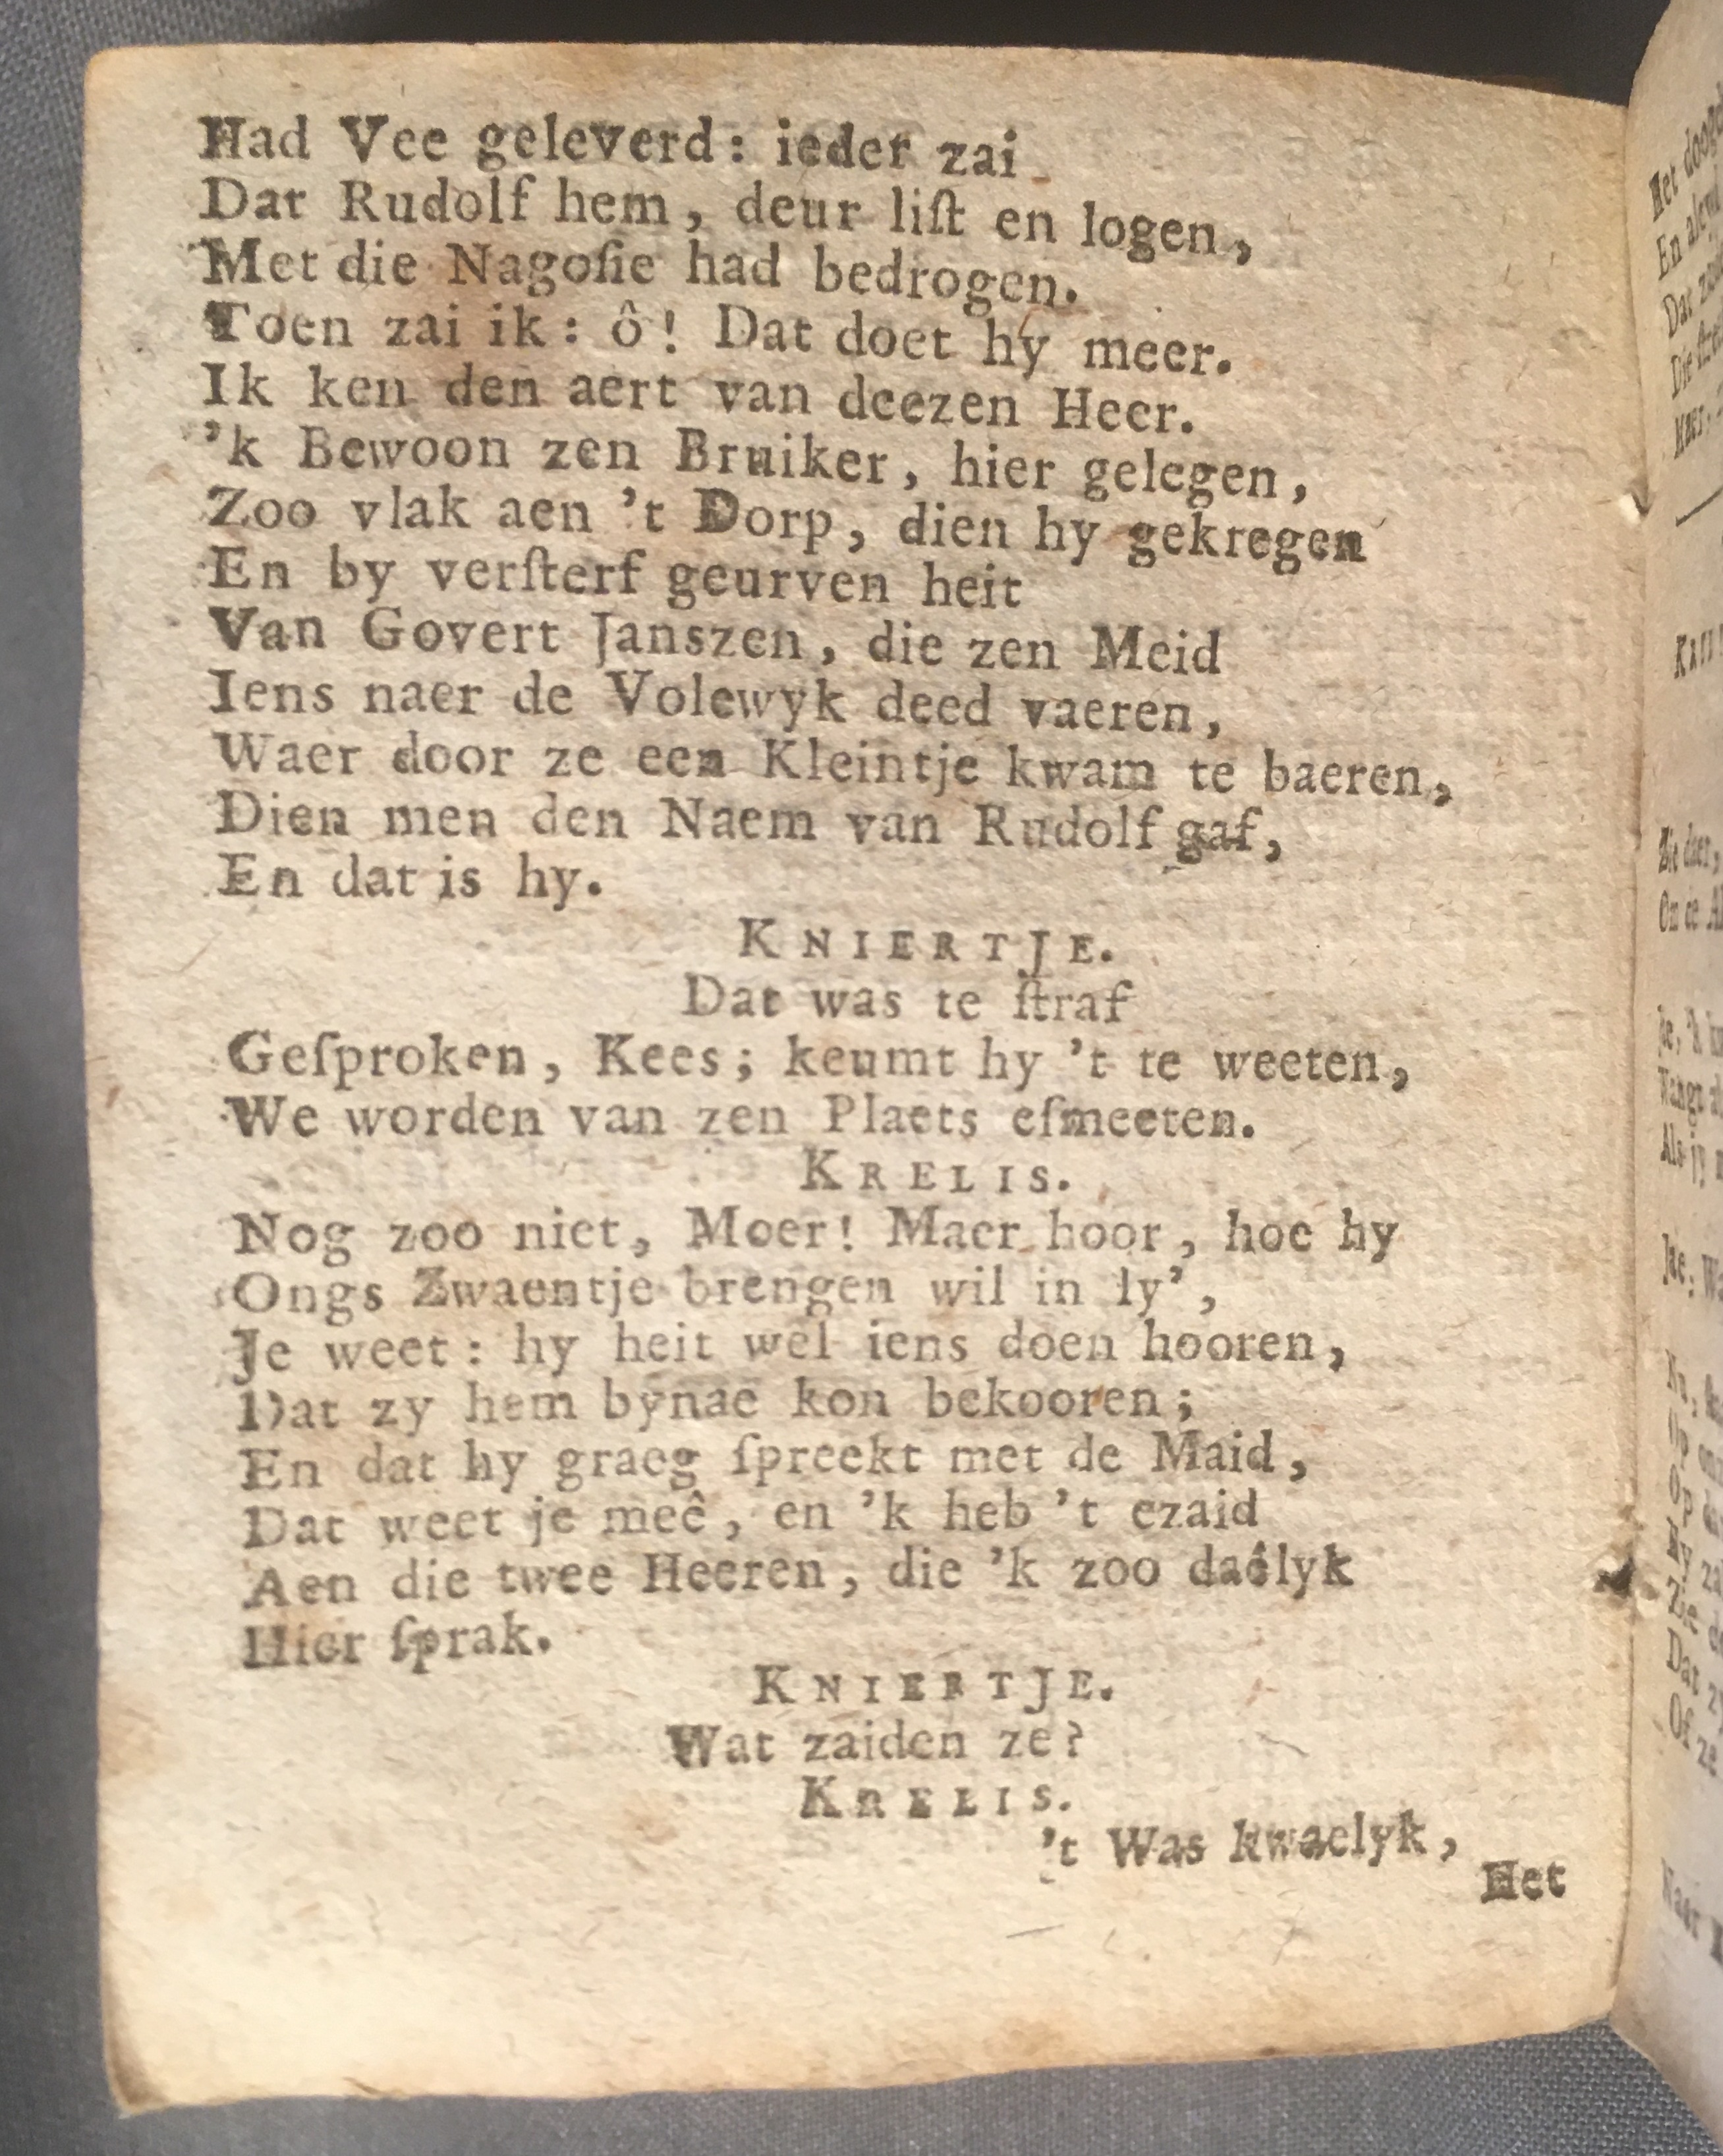 Had Vee geleverd: ieder zai
Dat Rudolf hem, deur liſt en logen,
Met die Nagoſie had bedrogen.
Toen zai ik: ô! Dat doet hy meer.
Ik ken den aert van deezen Heer.
'k Bewoon zen Bruiker, hier gelegen,
Zoo vlak aen 't Dorp, dien hy gekregen
En by verſterf geurven heit
Van Govert Janszen, die zen Meid
Iens naer de Volewyk deed vaeren,
Waer door ze een Kleintje kwam te baeren,
Dien men den Naem van Rudolf gaf,
En dat is hy.
KNIERTJE.
Dat was te ſtraf
Geſproken, Kees; keumt hy 't te weeten,
We worden van zen Plaets eſmeeten.
KRELIS.
Nog zoo niet, Moer! Maer hoor, hoe hy
Ongs Zwaentje brengen wil in ly',
Je weet: hy heit wel iens doen hooren,
Dat zy hem bynae kon bekooren;
En dat hy graeg ſpreekt met de Maid,
Dat weet je meê, en 'k heb 't ezaid
Aen die twee Heeren, die 'k zoo daêlyk
Hier ſprak.
KNIERTJE.
Wat zaiden ze?
KRELIS.
't Was kwaelyk,
Het